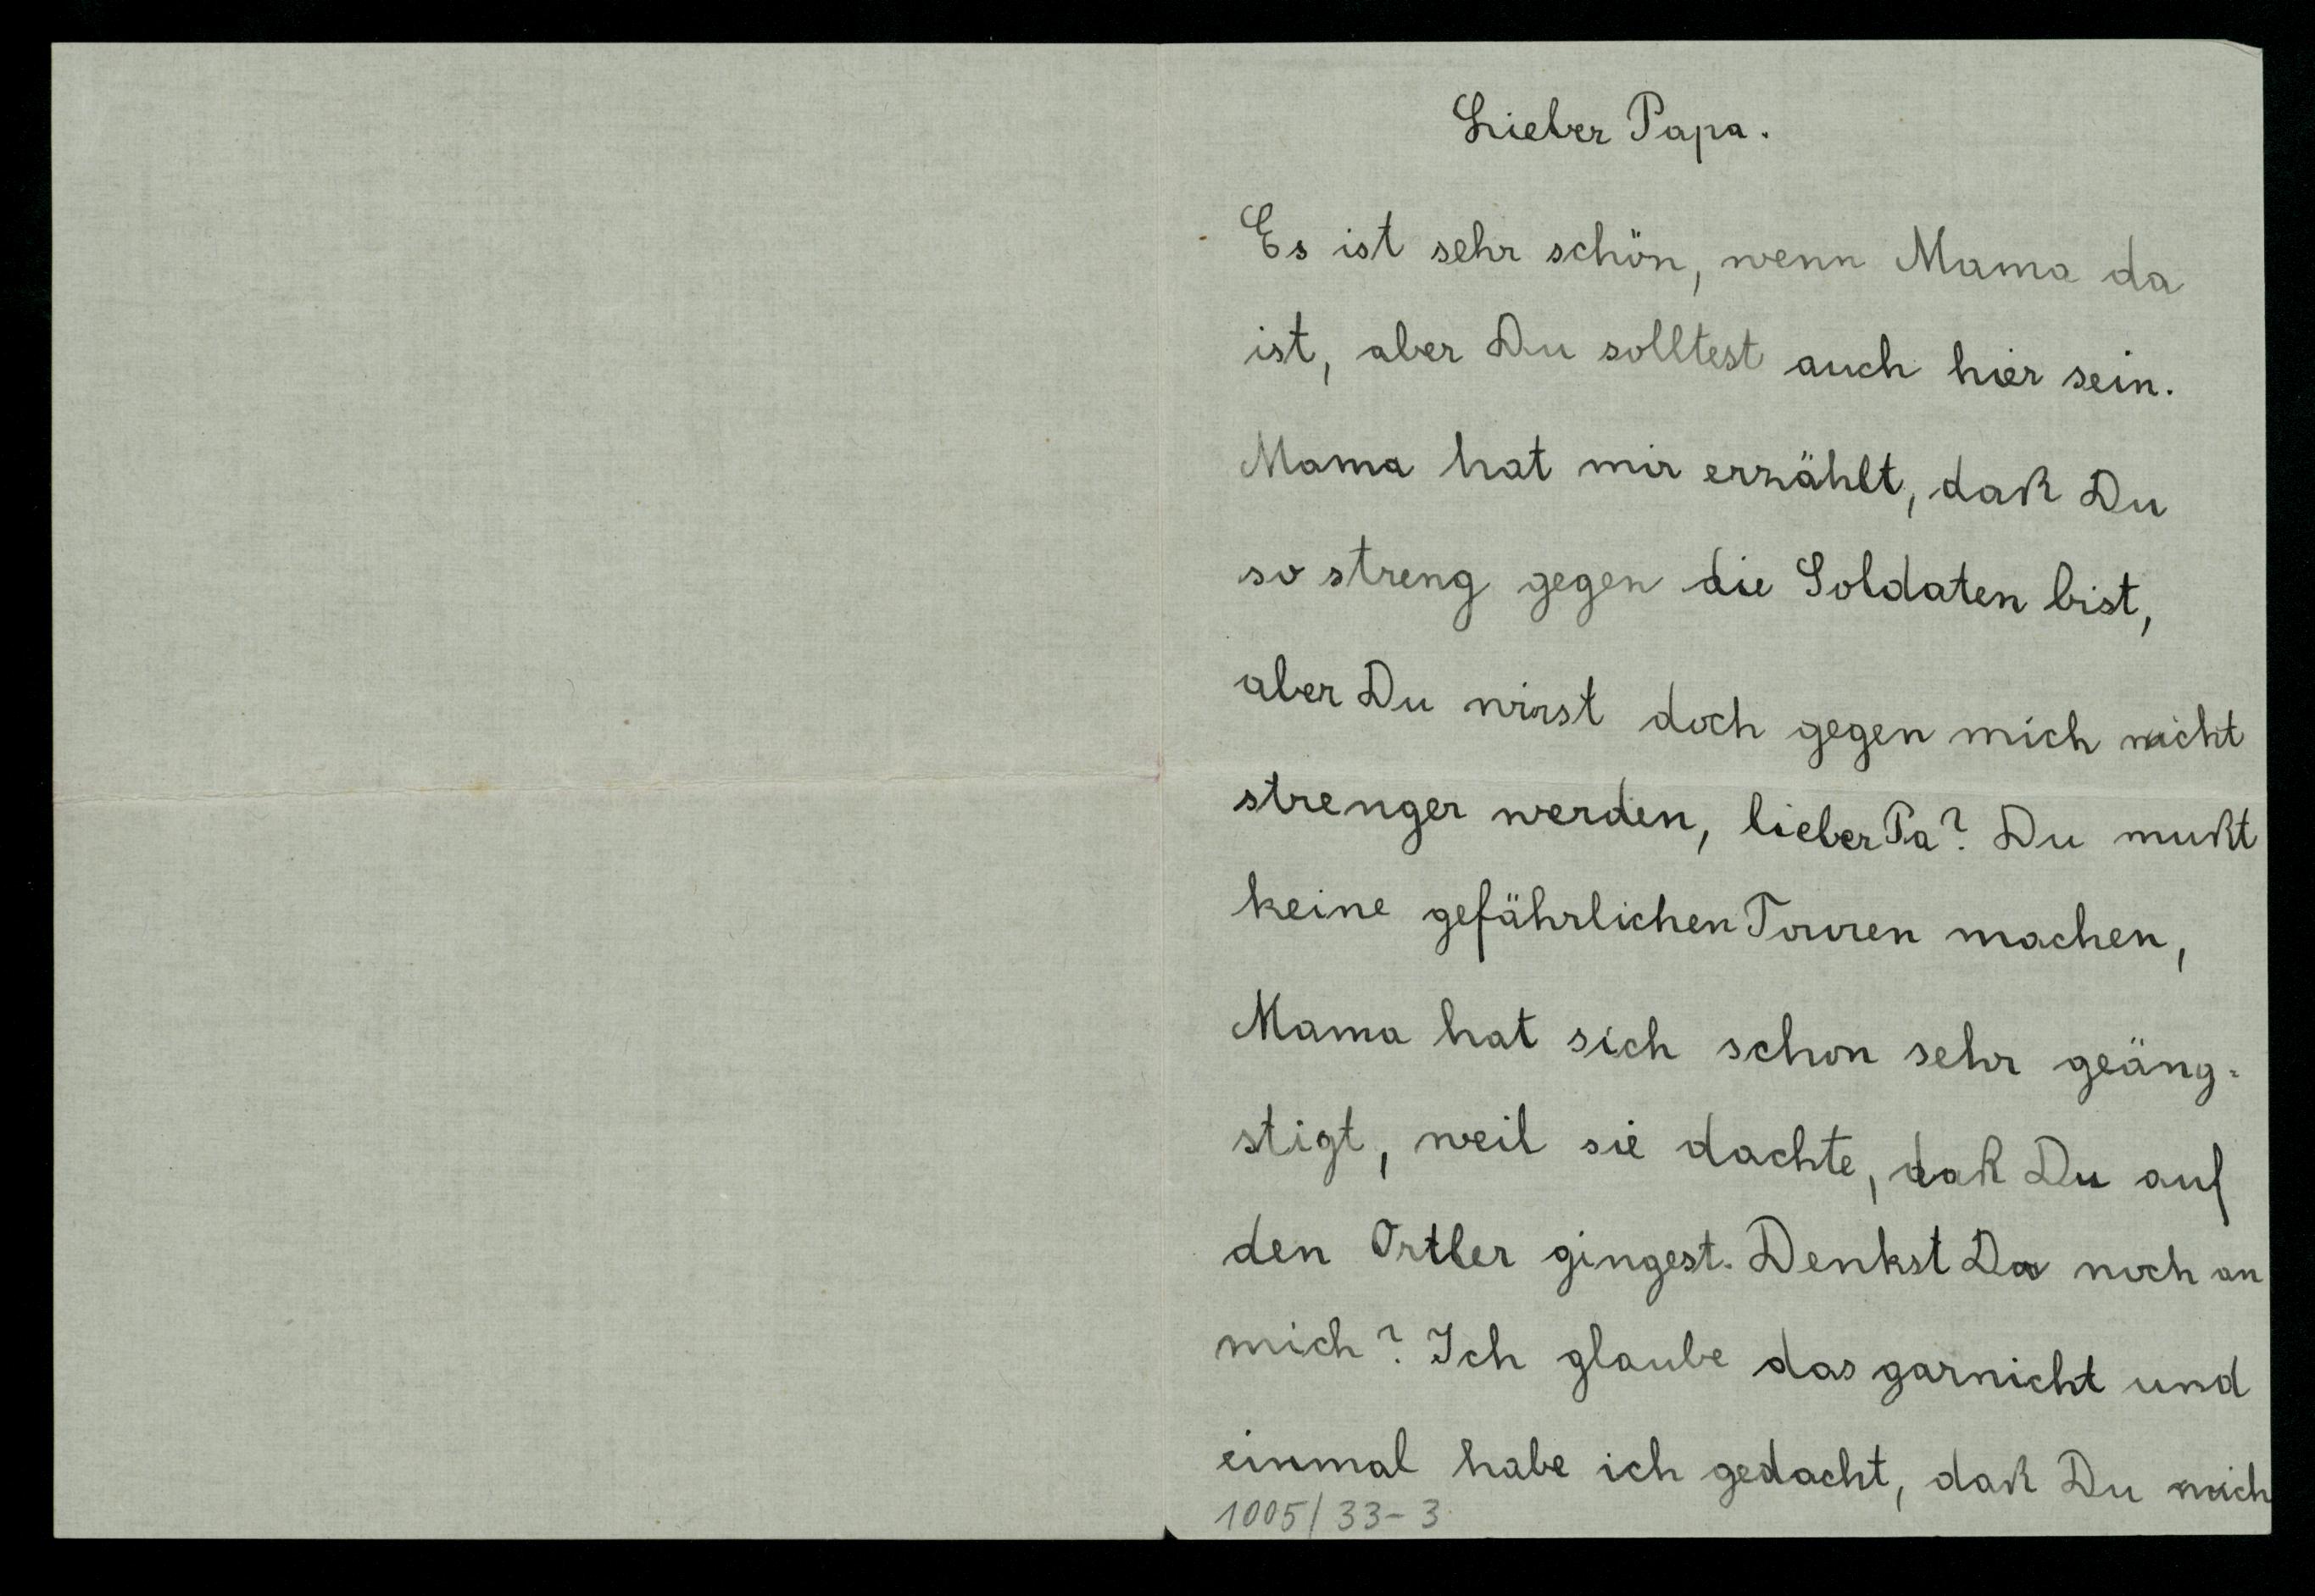 Lieber Papa.
Es ist sehr schön, wenn Mama da
ist, aber Du solltest auch hier sein.
Mama hat mir erzählt, daß Du
so streng gegen die Soldaten bist,
aber Du wirst doch gegen mich nicht
strenger werden, lieber Pa? Du mußt
keine gefährlichen Touren machen,
Mama hat sich schon sehr geäng-
stigt, weil sie dachte, daß Du auf
den Ortler gingest. Denkst Du noch an
mich? Ich glaube das garnicht und
einmal habe ich gedacht, daß Du mich
1005/33-3